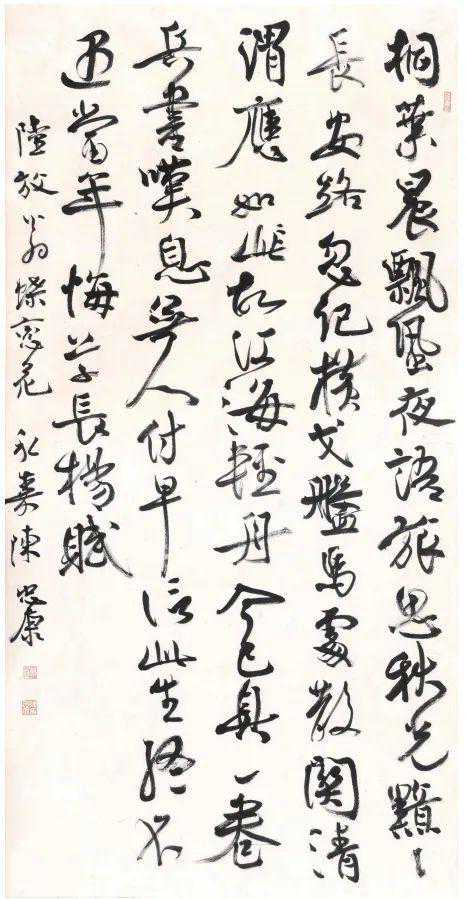 桐葉晨飄蛩夜語旅思秋光黯〻
長安路忽記橫戈盤馬處散關清
渭應如此故江海輕舟今已具一卷
兵書嘆息無人付早信此生終不
遇當年悔草長楊賦
陸放翁蝶戀花 永嘉陳忠康